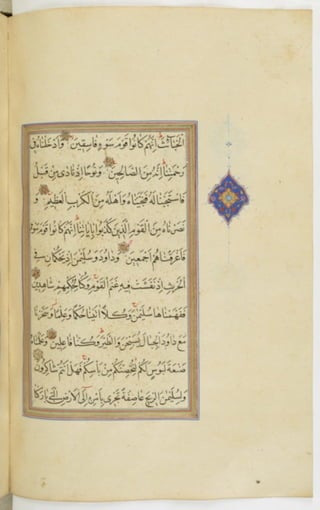 الْخَبَائِثَ إِنَّهُمْ كَانُوا قَوْمَ سَوْءٍ فَاسِقِينَ وَأَدْخَلْنَاهُ فِي
رَحْمَتِنَا إِنَّهُ مِنَ الصَّالِحِينَ وَنُوحًا إِذْ نَادَى مِنْ قَبْلُ
فَاسْتَجَبْنَا لَهُ فَنَجَّيْنَاهُ وَأَهْلَهُ مِنَ الْكَرْبِ الْعَظِيمِ وَ
نَصَرْنَاهُ مِنَ الْقَوْمِ الَّذِينَ كَذَّبُوا بِآيَاتِنَا إِنَّهُمْ كَانُوا قَوْمَ سَوْءٍ
فَأَغْرَقْنَاهُمْ أَجْمَعِينَ وَدَاوُدَ وَسُلَيْمَنَ إِذْ يَحْكُمَانِ فِي
الْحَرْثِ إِذْ نَفَشَتْ فِيهِ غَنَمُ الْقَوْمِ وَكُنَّا لِحُكْمِهِمْ شَاهِدِينَ
فَفَهَّمْنَاهَا سُلَيْمَنَ وَكُلًّا آتَيْنَا حُكْمًا وَعِلْمًا وَسَخَّرْنَا
مَعَ دَاوُدَ الْجِبَالَ يُسَبِّحْنَ وَالطَّيْرَ وَكُنَّا فَاعِلِينَ وَعَلَّمْنَاهُ
صَنْعَةَ لَبُوسٍ لَكُمْ لِتُحْصِنَكُمْ مِنْ بَأْسِكُمْ فَهَلْ أَنْتُمْ شَاكِرُونَ
وَلِسُلَيْمَنَ الرِّيحَ عَاصِفَةً تَجْرِي بِأَمْرِهِ إِلَى الْأَرْضِ الَّتِي بَارَكْنَا